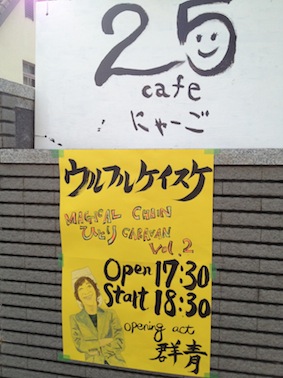 25
cafe
にゃーご
ウルフルケイスケ
MAGICAL CHAIN
ひとり CARAVAN
Vol.2
Open 17:30
Start 18:30
opening act
群青